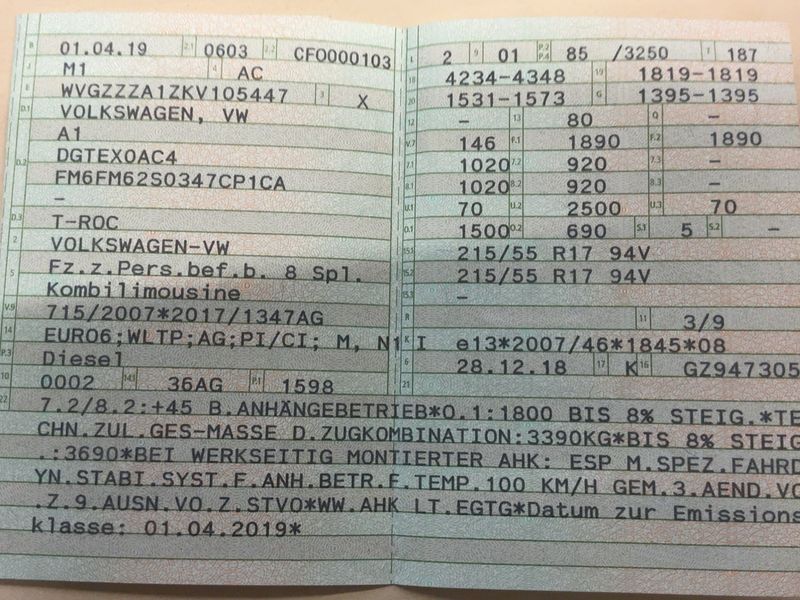 B 01.04.19 2.1 0603 2.2 CFO000103
J M1 4 AC
E WVGZZZA1ZKV105447 3 X
D.1 VOLKSWAGEN, VW
A1
D.2 DGTEX0AC4
FM6FM62S0347CP1CA
–
D.3 T-ROC
2 VOLKSWAGEN-VW
5 Fz.z.Pers.bef.b. 8 Spl.
Kombilimousine
V.9 715/2007*2017/1347AG
14 EURO6;WLTP;AG;PI/CI; M, N1 I
P.3 Diesel
10 0002 14.1 36AG P.1 1598
L 2 9 01 P.2 P.4 85 /3250 T 187
18 4234-4348 19 1819-1819
20 1531-1573 G 1395-1395
12 – 13 80 Q –
V.7 146 F.1 1890 F.2 1890
7.1 1020 7.2 920 7.3 –
8.1 1020 8.2 920 8.3 –
U.1 70 U.2 2500 U.3 70
O.1 1500 O.2 690 S.1 5 S.2 –
15.1 215/55 R17 94V
215/55 R17 94V
15.3 –
R 11 3/9
K e13*2007/46*1845*08
6 28.12.18 17 K 16 GZ947305
21
22 7.2/8.2:+45 B.ANHÄNGEBETRIEB*O.1:1800 BIS 8% STEIG.*TE
CHN.ZUL.GES-MASSE D.ZUGKOMBINATION:3390KG*BIS 8% STEIG
.:3690*BEI WERKSEITIG MONTIERTER AHK: ESP M.SPEZ.FAHRD
YN.STABI.SYST.F.ANH.BETR.F.TEMP.100 KM/H GEM.3.AEND.VO
.Z.9.AUSN.VO.Z.STVO*WW.AHK LT.EGTG*Datum zur Emissions
klasse: 01.04.2019*